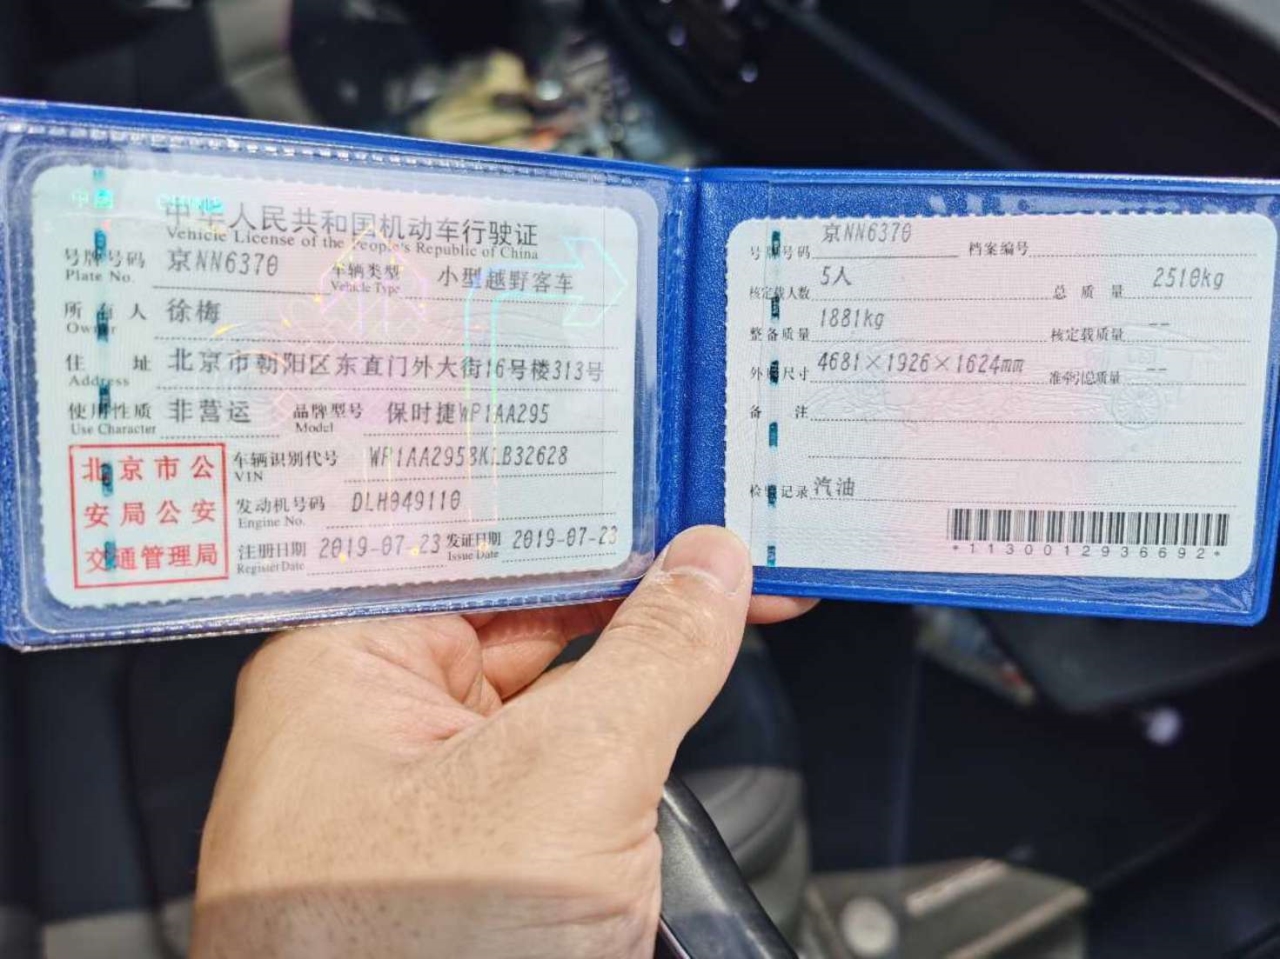 中国 CHINA
中华人民共和国机动车行驶证
Vehicle License of the People's Republic of China
号牌号码 京NN6370 车辆类型 小型越野客车
Plate No. Vehicle Type
所有人 徐梅
Owner
住址 北京市朝阳区东直门外大街16号楼313号
Address
使用性质 非营运 品牌型号 保时捷WP1AA295
Use Character Model
北京市公
安局公安
交通管理局
车辆识别代号 WP1AA2958KLB32628
VIN
发动机号码 DLH049110
Engine No.
注册日期 2019-07-23 发证日期 2019-07-23
Register Date Issue Date
号牌号码 京NN6370 档案编号
核定载人数 5人 总质量 2510kg
整备质量 1881kg 核定载质量 --
外廓尺寸 4681×1926×1624mm 准牵引总质量 --
备注
检验记录 汽油
*1130012936692*